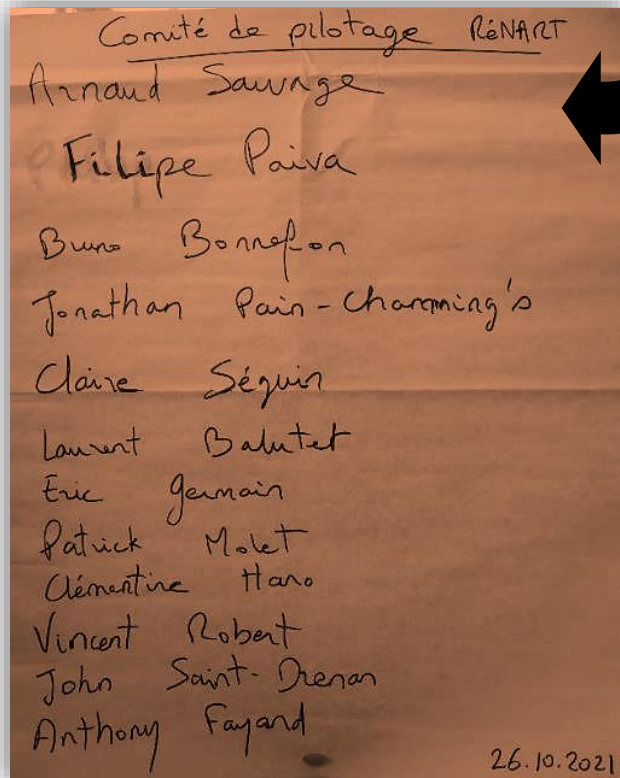 Comité de pilotage RéNART
Arnaud Sauvage
Filipe Paiva
Bruno Bonnefon
Jonathan Pain-Charming's
Claire Séguin
Laurent Balutet
Eric Germain
Patrick Molet
Clémentine Hano
Vincent Robert
John Saint-Drenan
Anthony Fayand
26.10.2021